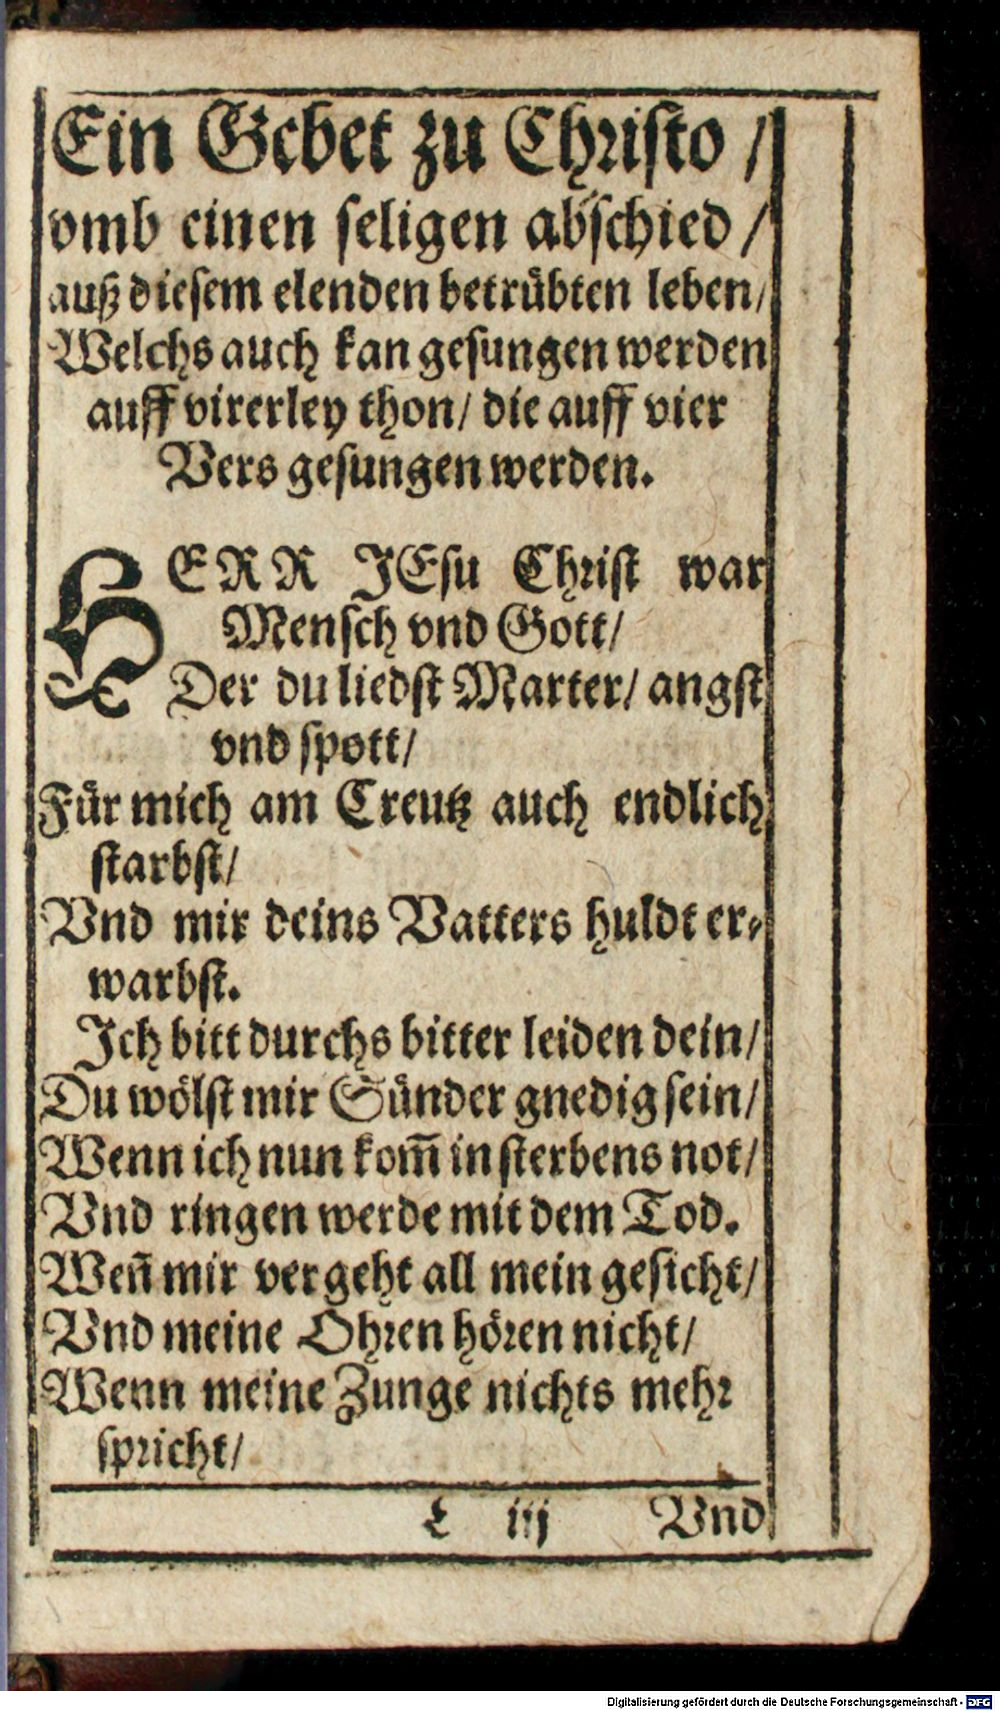 Ein Gebet zu Christo /
vmb einen seligen abschied /
auß diesem elenden betrübten leben/
Welchs auch kan gesungen werden
auff virerley thon/ die auff vier
Vers gesungen werden.
HERR JEsu Christ war
Mensch vnd Gott/
Der du liedst Marter/ angst
vnd spott/
Für mich am Creutz auch endlich
starbst/
Vnd mir deins Vatters huldt er-
warbst.
Ich bitt durchs bitter leiden dein/
Du wölst mir Sünder gnedig sein/
Wenn ich nun kom̅ in sterbens not/
Vnd ringen werde mit dem Tod.
Wen̅ mir vergeht all mein gesicht/
Vnd meine Ohren hören nicht/
Wenn meine Zunge nichts mehr
spricht/
iij Vnd
Digitalisierung gefördert durch die Deutsche Forschungsgemeinschaft - DFG